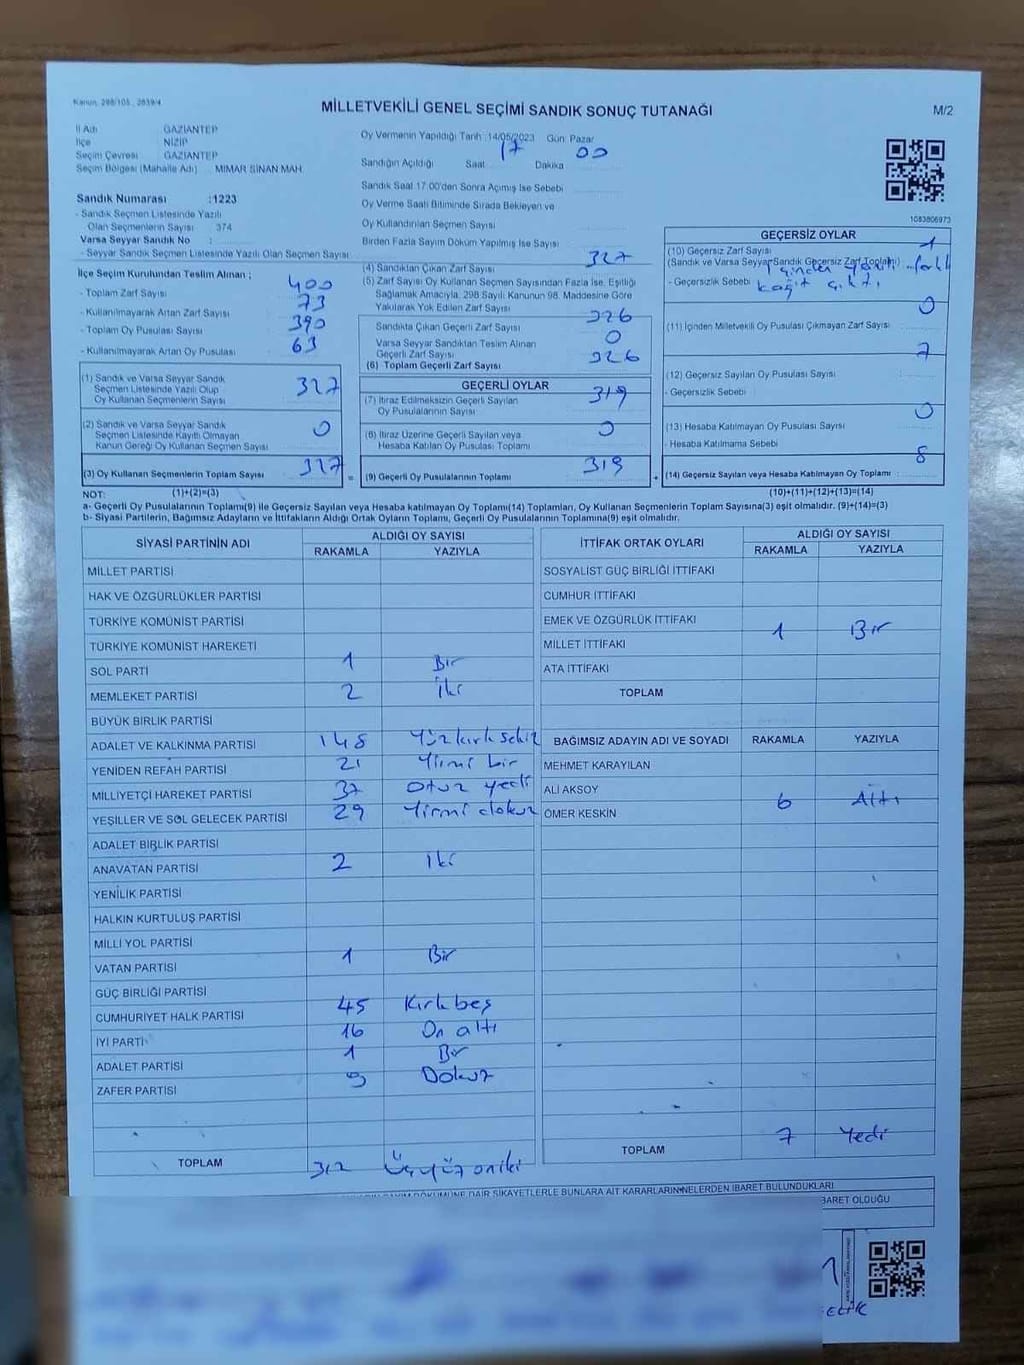 Kanun, 298/105 , 2839/4
MİLLETVEKİLİ GENEL SEÇİMİ SANDIK SONUÇ TUTANAĞI
M/2
İl Adı : GAZİANTEP
İlçe : NİZİP
Seçim Çevresi : GAZİANTEP
Seçim Bölgesi (Mahalle Adı) : MİMAR SİNAN MAH.
Sandık Numarası :1223
- Sandık Seçmen Listesinde Yazılı
Olan Seçmenlerin Sayısı : 374
Varsa Seyyar Sandık No :
- Seyyar Sandık Seçmen Listesinde Yazılı Olan Seçmen Sayısı
Oy Vermenin Yapıldığı Tarih :14/05/2023 Gün: Pazar
Sandığın Açıldığı Saat 17 Dakika 00
Sandık Saat 17.00'den Sonra Açılmış İse Sebebi
Oy Verme Saati Bitiminde Sırada Bekleyen ve
Oy Kullandırılan Seçmen Sayısı
Birden Fazla Sayım Döküm Yapılmış İse Sayısı
1083806973
İlçe Seçim Kurulundan Teslim Alınan ;
- Toplam Zarf Sayısı 400
- Kullanılmayarak Artan Zarf Sayısı 73
- Toplam Oy Pusulası Sayısı 390
- Kullanılmayarak Artan Oy Pusulası 63
(1) Sandık ve Varsa Seyyar Sandık
Seçmen Listesinde Yazılı Olup
Oy Kullanan Seçmenlerin Sayısı 327
(2) Sandık ve Varsa Seyyar Sandık
Seçmen Listesinde Kayıtlı Olmayan
Kanun Gereği Oy Kullanan Seçmen Sayısı 0
(3) Oy Kullanan Seçmenlerin Toplam Sayısı 327
(4) Sandıktan Çıkan Zarf Sayısı 327
(5) Zarf Sayısı Oy Kullanan Seçmen Sayısından Fazla İse, Eşitliği
Sağlamak Amacıyla, 298 Sayılı Kanunun 98. Maddesine Göre
Yakılarak Yok Edilen Zarf Sayısı
Sandıkta Çıkan Geçerli Zarf Sayısı 326
Varsa Seyyar Sandıktan Teslim Alınan
Geçerli Zarf Sayısı 0
(6) Toplam Geçerli Zarf Sayısı 326
GEÇERLİ OYLAR
(7) İtiraz Edilmeksizin Geçerli Sayılan
Oy Pusulalarının Sayısı 319
(8) İtiraz Üzerine Geçerli Sayılan veya
Hesaba Katılan Oy Pusulası Toplamı 0
= (9) Geçerli Oy Pusulalarının Toplamı 319
GEÇERSİZ OYLAR
(10) Geçersiz Zarf Sayısı 1
(Sandık ve Varsa Seyyar Sandık Geçersiz Zarf Toplamı)
- Geçersizlik Sebebi kağıt çıktı
(11) İçinden Milletvekili Oy Pusulası Çıkmayan Zarf Sayısı 0
(12) Geçersiz Sayılan Oy Pusulası Sayısı 7
- Geçersizlik Sebebi
(13) Hesaba Katılmayan Oy Pusulası Sayısı 0
- Hesaba Katılmama Sebebi
+ (14) Geçersiz Sayılan veya Hesaba Katılmayan Oy Toplamı 8
NOT: (1)+(2)=(3) (10)+(11)+(12)+(13)=(14)
a- Geçerli Oy Pusulalarının Toplamı(9) ile Geçersiz Sayılan veya Hesaba katılmayan Oy Toplamı(14) Toplamları, Oy Kullanan Seçmenlerin Toplam Sayısına(3) eşit olmalıdır. (9)+(14)=(3)
b- Siyasi Partilerin, Bağımsız Adayların ve İttifakların Aldığı Ortak Oyların Toplamı, Geçerli Oy Pusulalarının Toplamına(9) eşit olmalıdır.
SİYASİ PARTİNİN ADI ALDIĞI OY SAYISI
RAKAMLA YAZIYLA
MİLLET PARTİSİ
HAK VE ÖZGÜRLÜKLER PARTİSİ
TÜRKİYE KOMÜNİST PARTİSİ
TÜRKİYE KOMÜNİST HAREKETİ
SOL PARTİ 1 Bir
MEMLEKET PARTİSİ 2 İki
BÜYÜK BİRLİK PARTİSİ
ADALET VE KALKINMA PARTİSİ 148 Yüzkırksekiz
YENİDEN REFAH PARTİSİ 21 Yirmi bir
MİLLİYETÇİ HAREKET PARTİSİ 37 Otuz yedi
YEŞİLLER VE SOL GELECEK PARTİSİ 29 Yirmi dokuz
ADALET BİRLİK PARTİSİ
ANAVATAN PARTİSİ 2 İki
YENİLİK PARTİSİ
HALKIN KURTULUŞ PARTİSİ
MİLLİ YOL PARTİSİ
VATAN PARTİSİ 1 Bir
GÜÇ BİRLİĞİ PARTİSİ
CUMHURİYET HALK PARTİSİ 45 Kırkbeş
İYİ PARTİ 16 On altı
ADALET PARTİSİ 1 Bir
ZAFER PARTİSİ 9 Dokuz
TOPLAM 312 Üçyüz oniki
İTTİFAK ORTAK OYLARI ALDIĞI OY SAYISI
RAKAMLA YAZIYLA
SOSYALİST GÜÇ BİRLİĞİ İTTİFAKI
CUMHUR İTTİFAKI
EMEK VE ÖZGÜRLÜK İTTİFAKI
MİLLET İTTİFAKI 1 Bir
ATA İTTİFAKI
TOPLAM
BAĞIMSIZ ADAYIN ADI VE SOYADI RAKAMLA YAZIYLA
MEHMET KARAYILAN
ALİ AKSOY
ÖMER KESKİN 6 Altı
TOPLAM 7 Yedi
DÖKÜMÜNE DAİR ŞİKAYETLERLE BUNLARA AİT KARARLARIN NELERDEN İBARET BULUNDUKLARI
BARET OLDUĞU